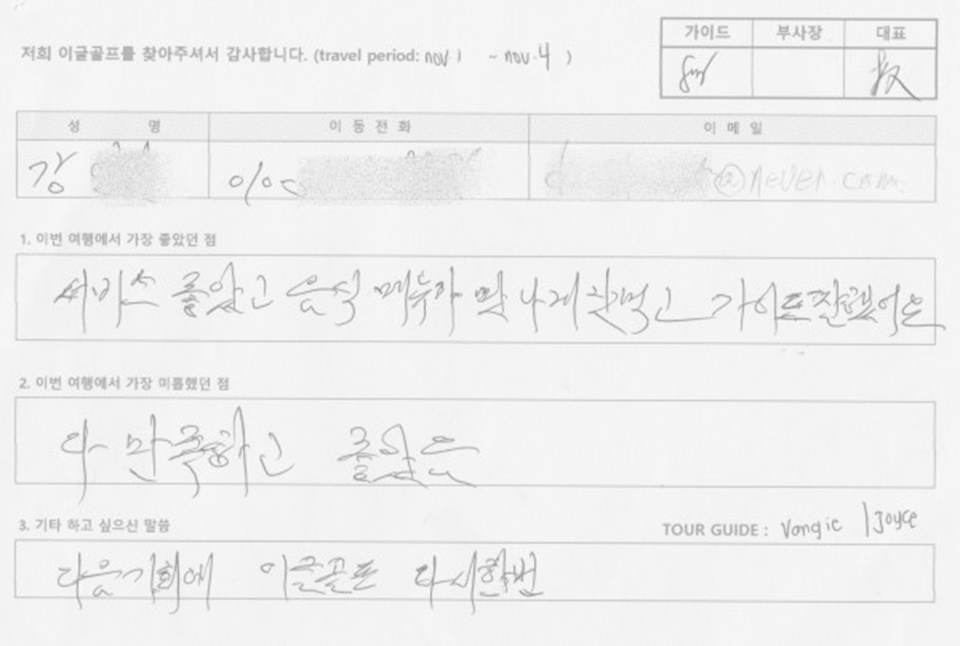 가이드 부사장 대표
저희 이글골프를 찾아주셔서 감사합니다. (travel period: nov. 1 ~ nov. 4 )
성 명 이 동 전 화 이 메 일
강 010 @never.com
1. 이번 여행에서 가장 좋았던 점
서비스 좋았고 음식 메뉴가 맛나게 잘먹고 가이드잘했어요
2. 이번 여행에서 가장 미흡했던 점
다 만족하고 좋았음
3. 기타 하고 싶으신 말씀
TOUR GUIDE : Vangie | Joyce
다음기회에 이글골프 다시한번